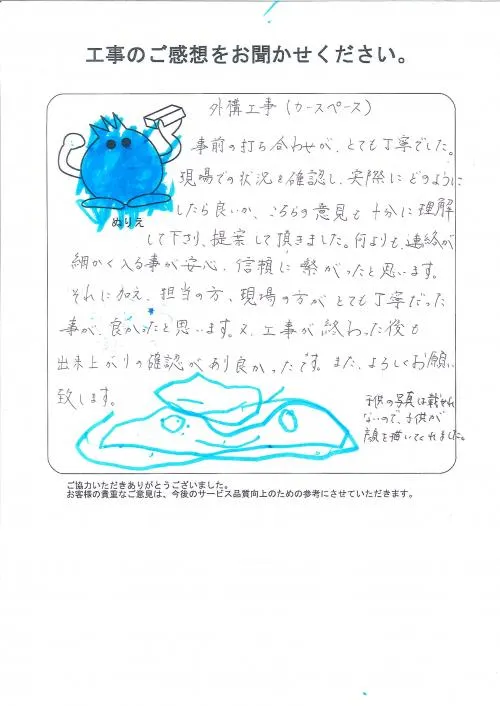 工事のご感想をお聞かせください。
外構工事(カースペース)
事前の打ち合わせが、とても丁寧でした。
現場での状況を確認し、実際にどのように
したら良いか、こちらの意見も十分に理解
して下さり、提案して頂きました。何よりも、連絡が
細かく入る事が安心、信頼に繋がったと思います。
それに加え、担当の方、現場の方がとても丁寧だった
事が、良かったと思います。又、工事が終わった後も
出来上がりの確認があり良かったです。また、よろしくお願い
致します。
ぬりえ
子供の写真は載せれ
ないので、子供が
顔を描いてくれました。
ご協力いただきありがとうございました。
お客様の貴重なご意見は、今後のサービス品質向上のための参考にさせていただきます。